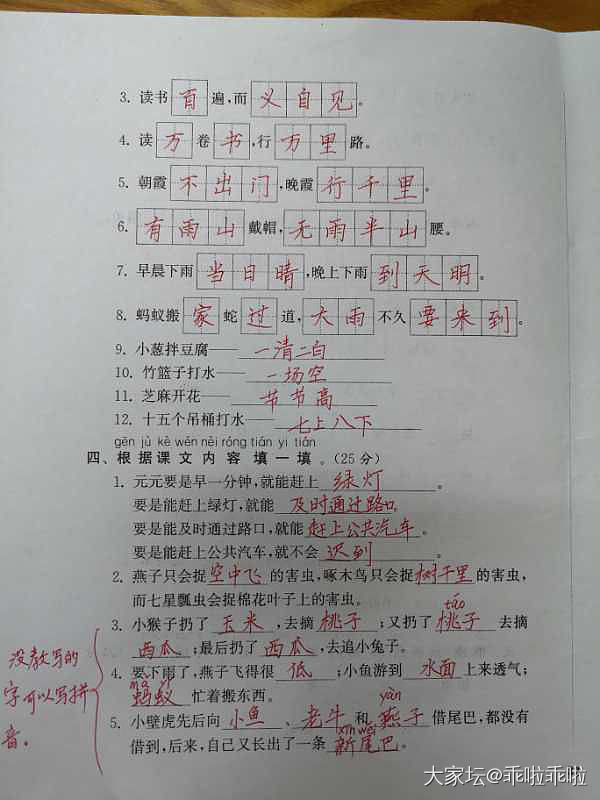 3. 读书百遍,而义自见。
4. 读万卷书,行万里路。
5. 朝霞不出门,晚霞行千里。
6. 有雨山戴帽,无雨半山腰。
7. 早晨下雨当日晴,晚上下雨到天明。
8. 蚂蚁搬家蛇过道,大雨不久要来到。
9. 小葱拌豆腐——一清二白
10. 竹篮子打水——一场空
11. 芝麻开花——节节高
12. 十五个吊桶打水——七上八下
gēn jù kè wén nèi róng tián yi tián
四、根据课文内容填一填。(25分)
1. 元元要是早一分钟,就能赶上绿灯。
要是能赶上绿灯,就能及时通过路口
要是能及时通过路口,就能赶上公共汽车。
要是能赶上公共汽车,就不会迟到。
2. 燕子只会捉空中飞的害虫,啄木鸟只会捉树干里的害虫,
而七星瓢虫会捉棉花叶子上的害虫。
táo
3. 小猴子扔了玉米,去摘桃子;又扔了桃子去摘
西瓜;最后扔了西瓜,去追小兔子。
4. 要下雨了,燕子飞得很低;小鱼游到水面上来透气;
mǎ yǐ
蚂蚁忙着搬东西。
yàn
5. 小壁虎先后向小鱼、老牛和燕子借尾巴,都没有
xīn wěi
借到,后来,自己又长出了一条新尾巴。
没教写的
字可以写拼
音。
大家坛@乖啦乖啦